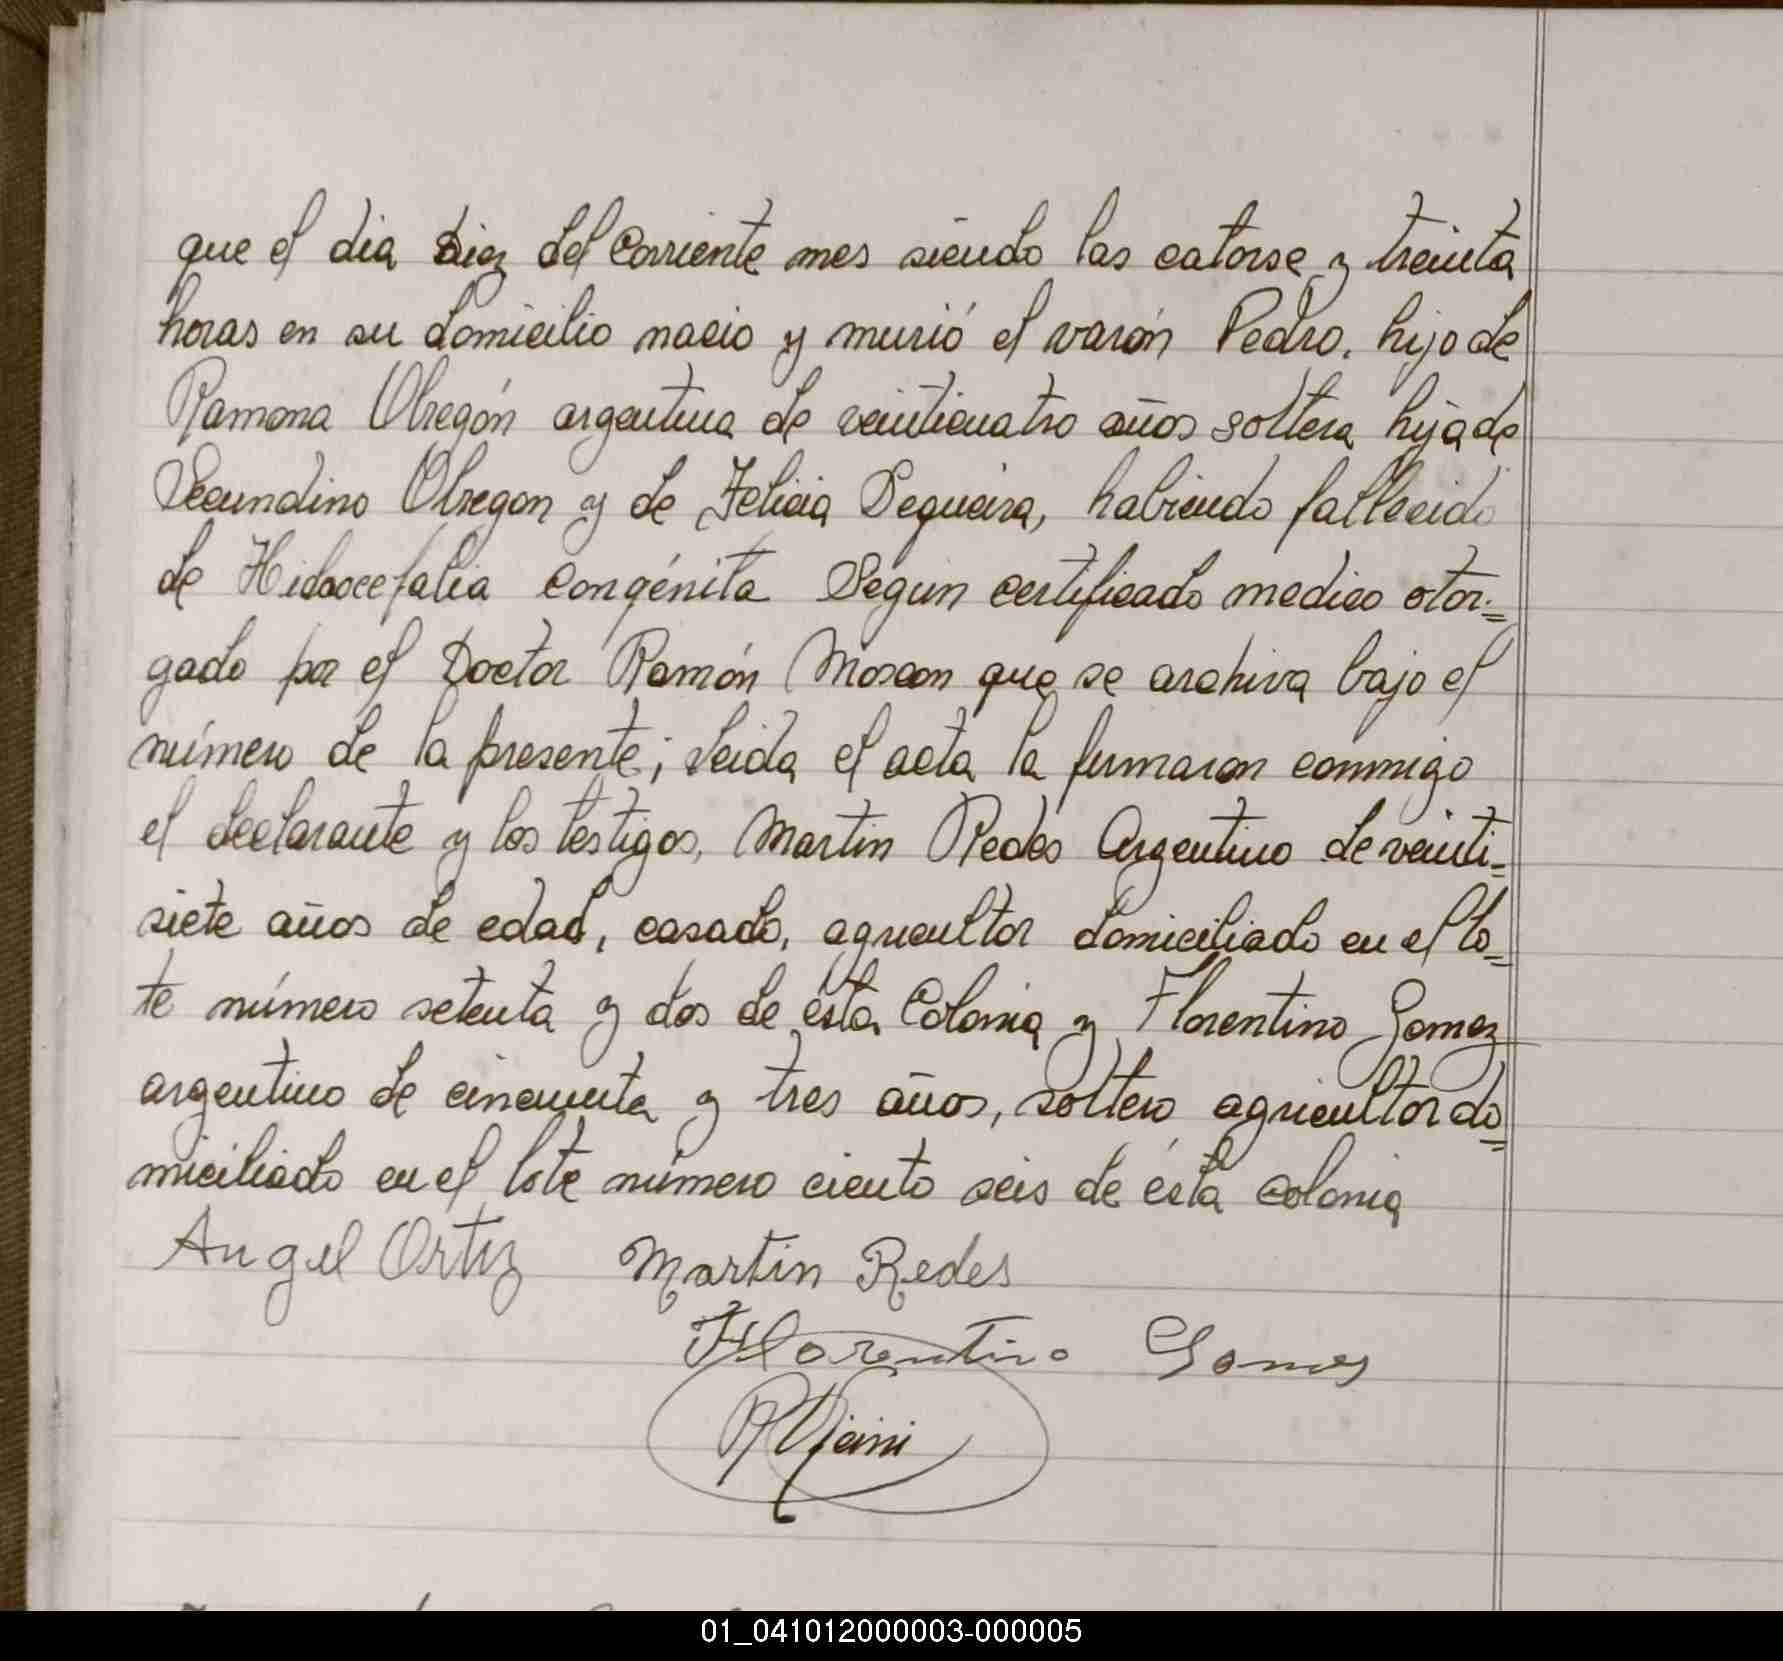 que el dia diez del Corriente mes siendo las catorse y treinta
horas en su domicilio nacio y murió el varón Pedro, hijo de
Ramona Obregón argentina de veinticuatro años soltera hija de
Secundino Obregon y de Felicia Sequeira, habiendo fallecido
de Hidrocefalia Congénita Segun certificado medico otor=
gado por el Doctor Ramón Moscon que se archiva bajo el
número de la presente; leida el acta la firmaron conmigo
el declarante y los testigos, Martin Redes Argentino de veinti=
siete años de edad, casado, agricultor domiciliado en el lo=
te número setenta y dos de ésta Colonia y Florentino Gomez
argentino de cincuenta y tres años, soltero agricultor do=
miciliado en el lote número ciento seis de ésta colonia
Angel Ortiz Martin Redes
Florentino Gomes
01_041012000003-000005